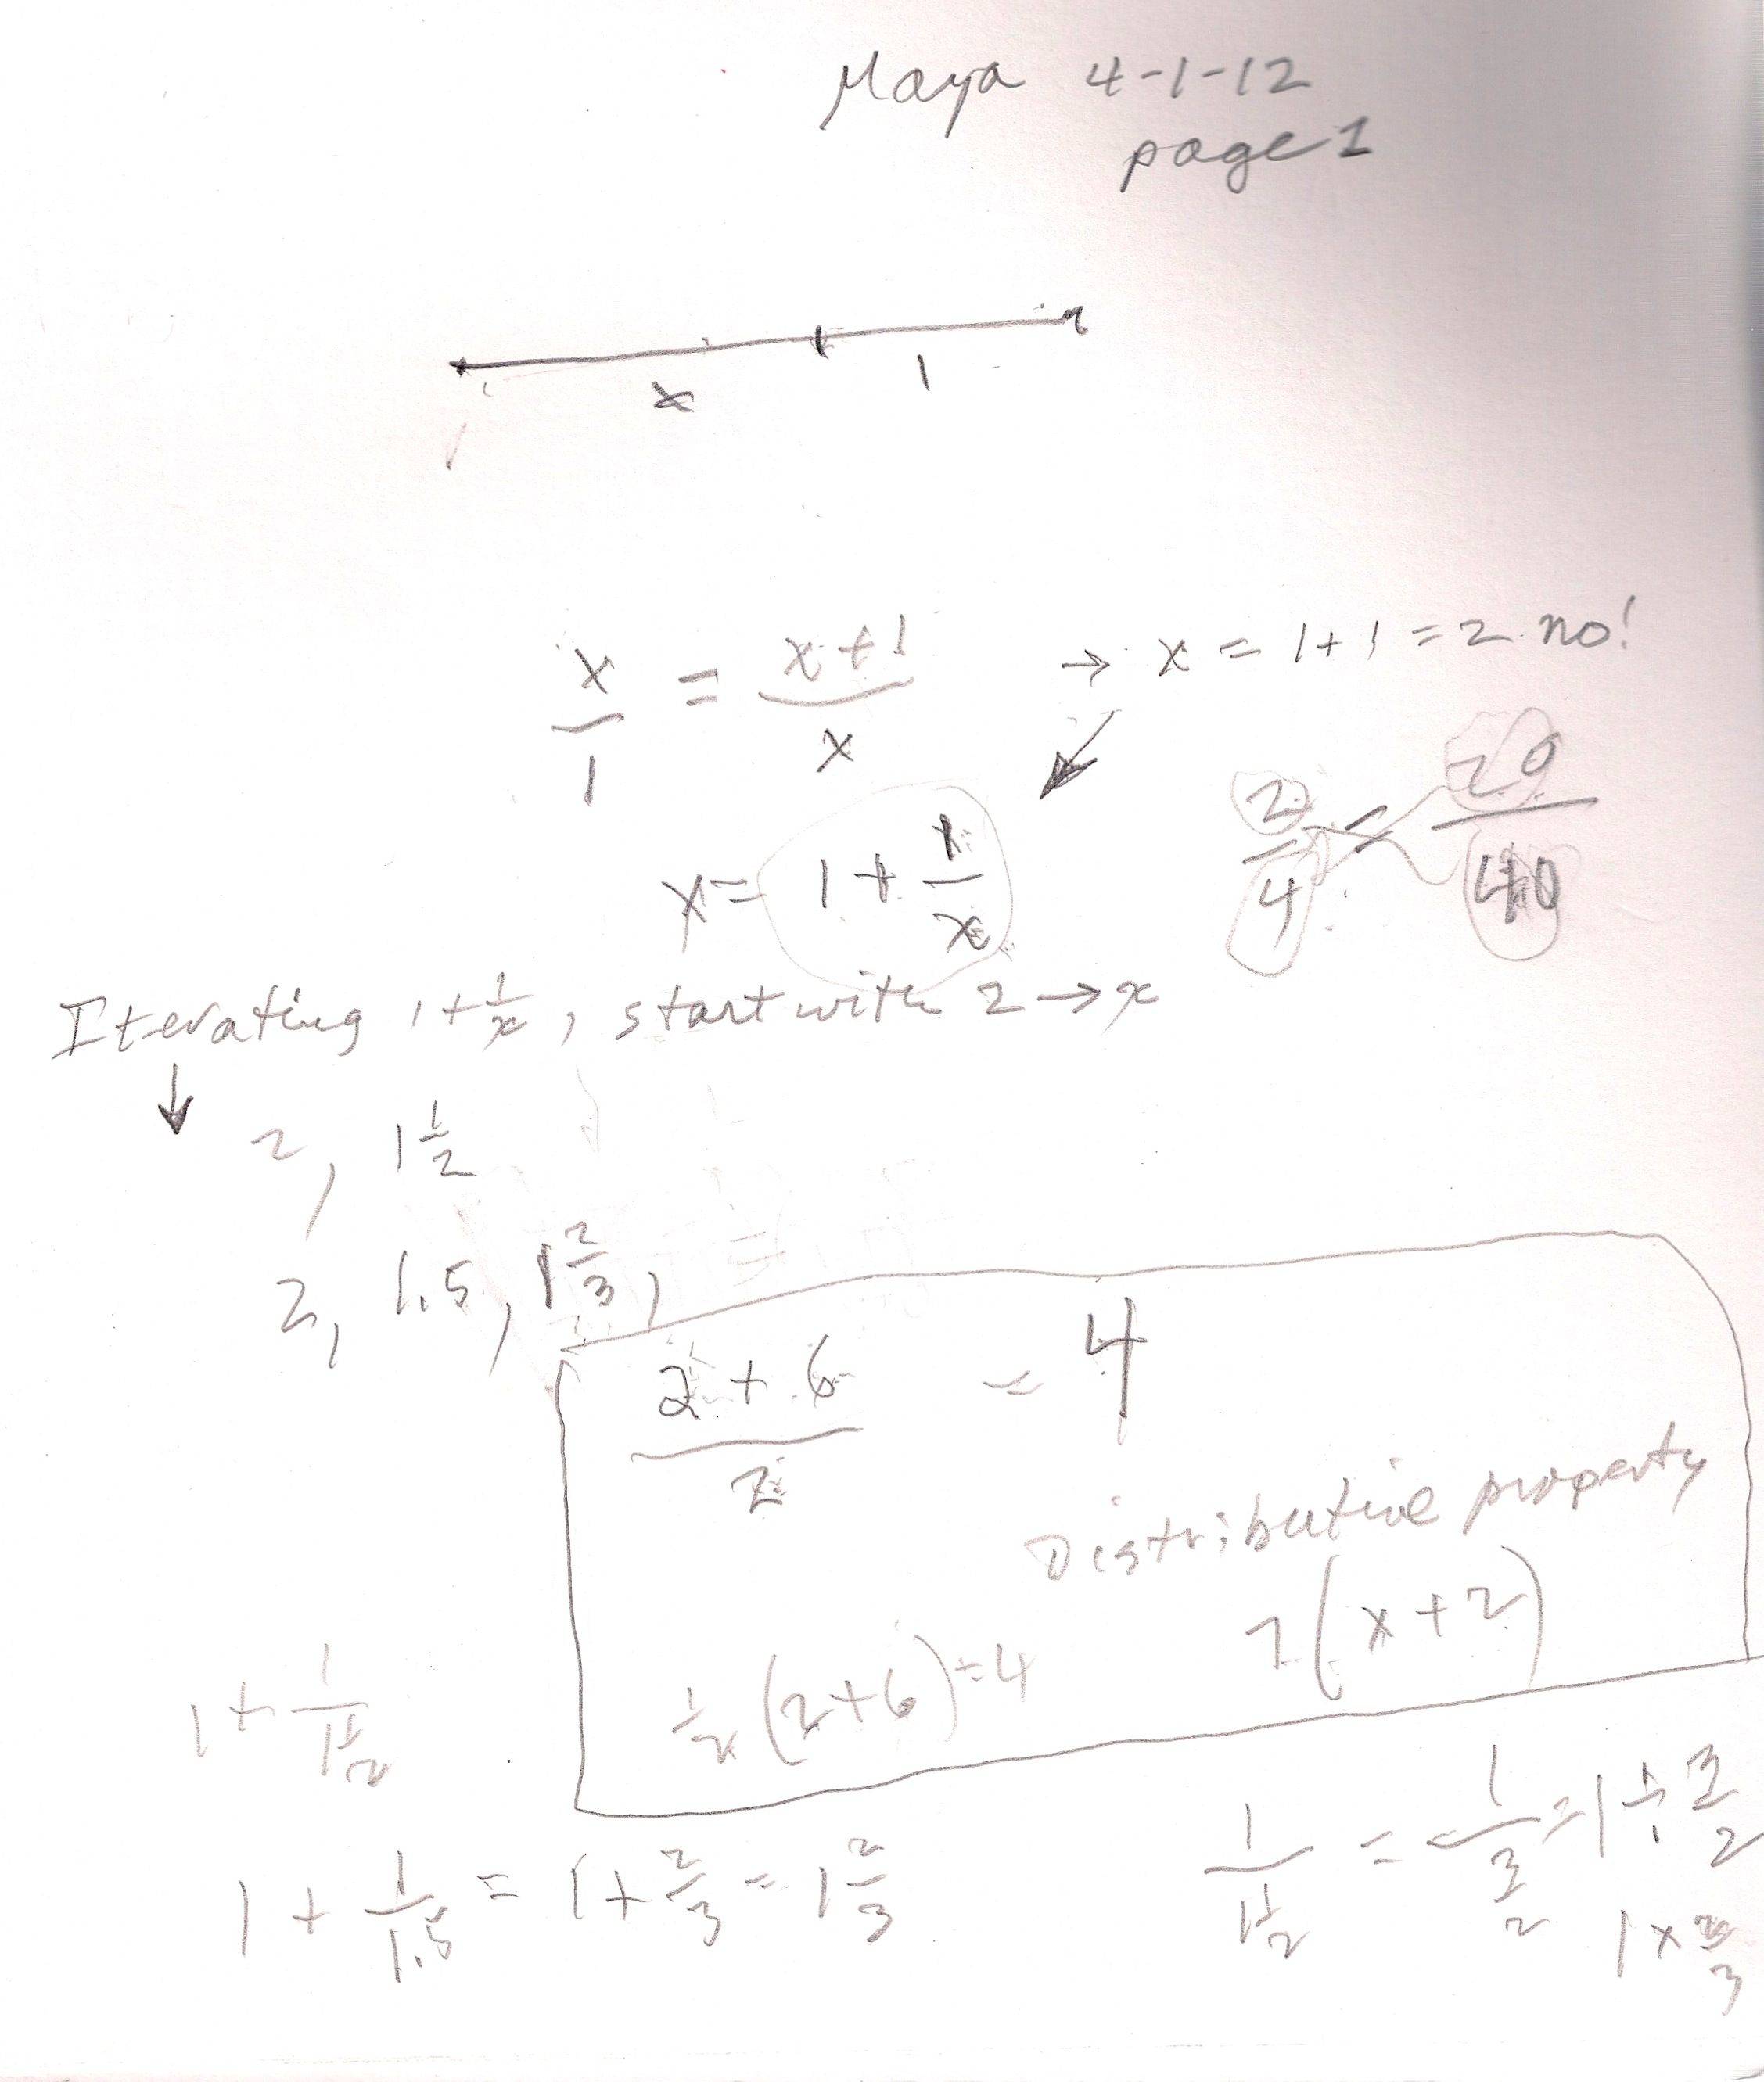 Maya 4-1-12
page 1
x 1
x/1 = (x+1)/x → x = 1+1 = 2 no!
x = 1 + 1/x
2/4 = 20/40
Iterating 1+1/x, start with 2→x
↓
2, 1 1/2
2, 1.5, 1 2/3,
(2+6)/2 = 4
Distributive property
1/2 (2+6) = 4 2(x+2)
1 + 1/(1 1/2)
1 + 1/1.5 = 1 + 2/3 = 1 2/3
1/(1 1/2) = 1/(3/2) = 1 ÷ 3/2
1 × 2/3